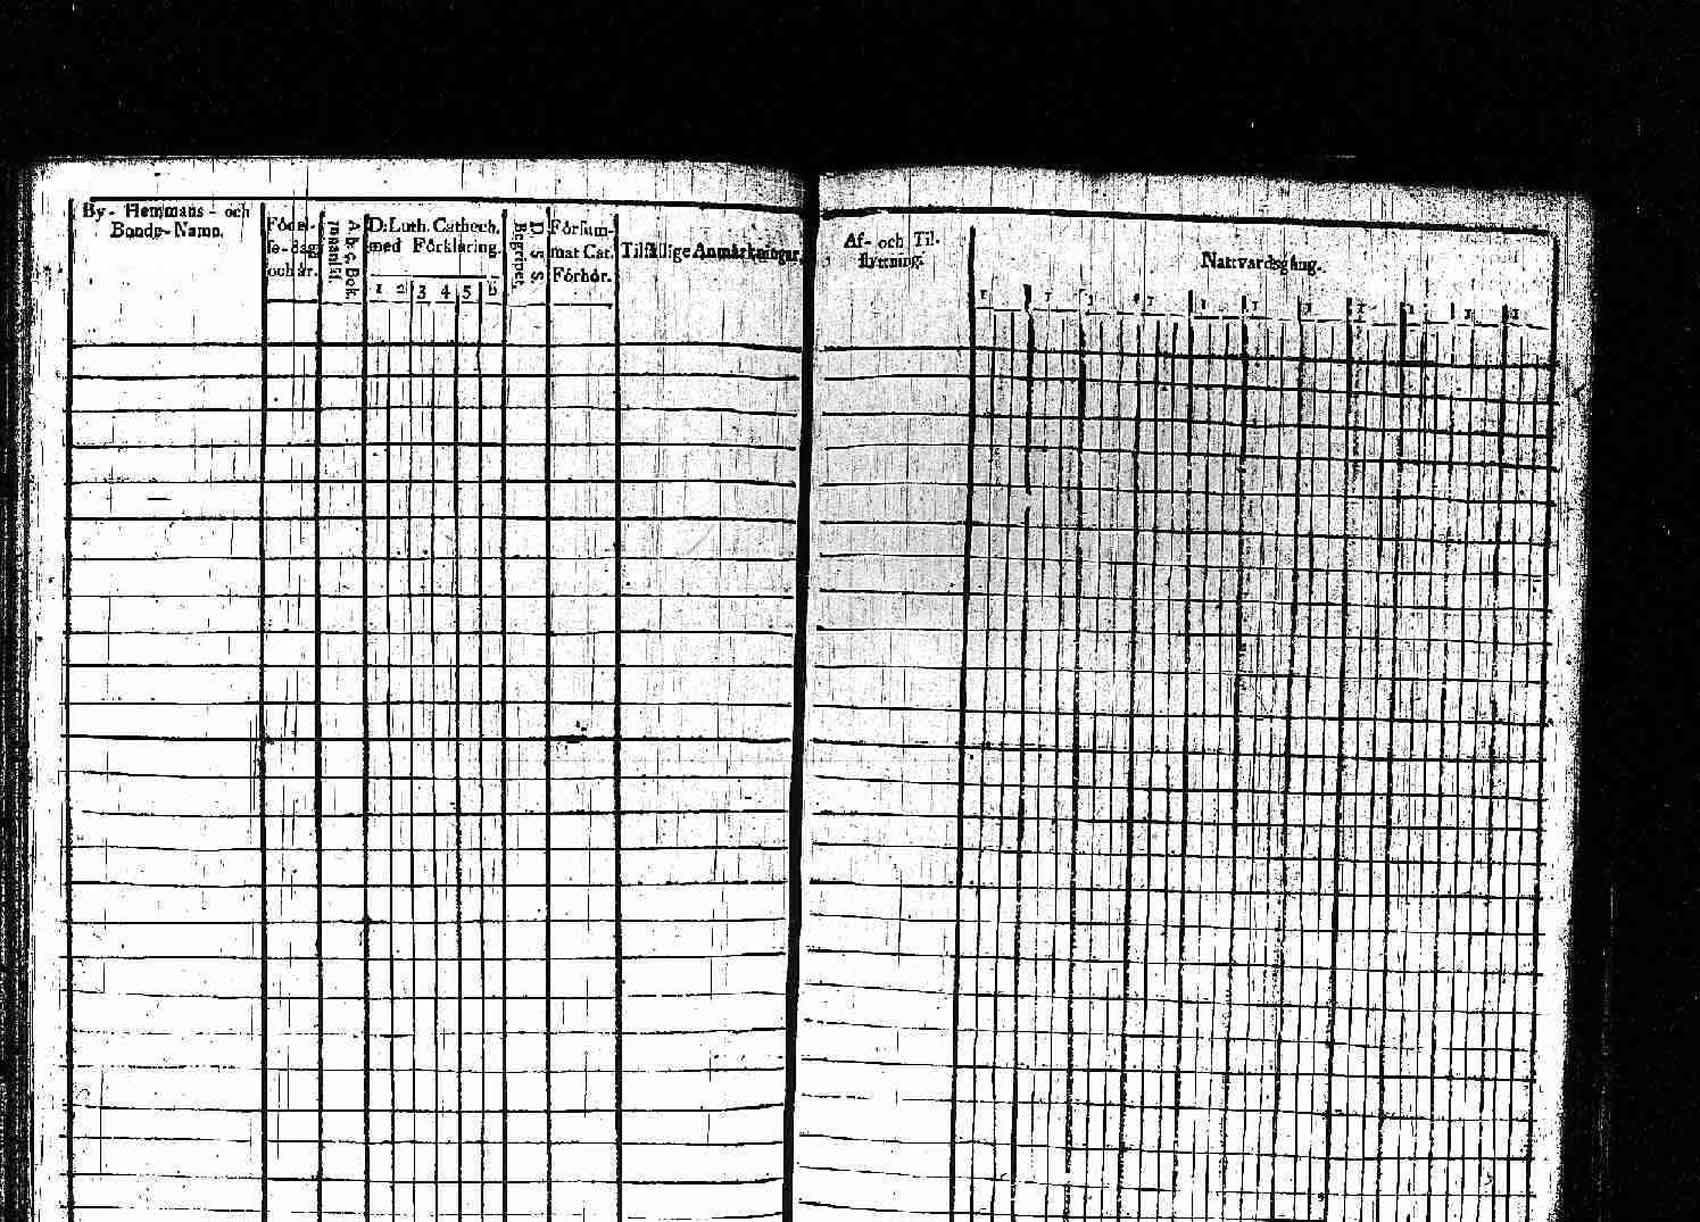 By- Hemmans- och
Bonde-Namn.
Födel-
se-dag
och år.
A. b. c. Bok.
innantil.
D: Luth. Cathech.
med Förklaring.
1 2 3 4 5 6
D. S. S.
Begripet.
Försum-
mat Cat.
Förhör.
Tilfällige Anmärkningar.
Af- och Til-
flyttning.
Nattvardsgång.
1 1 1 1 1 1 1 1 1 1 1